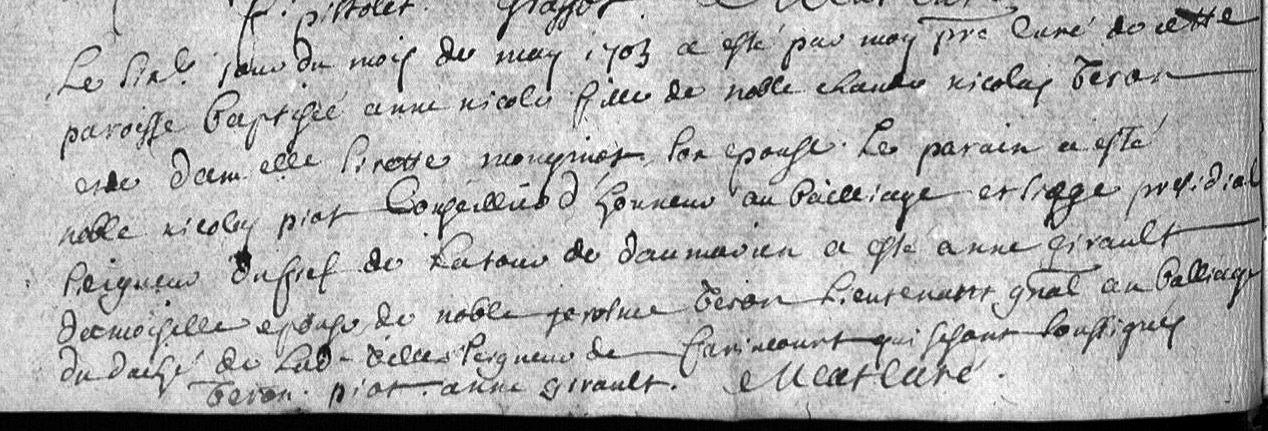 f. pistolet. Grassot
Le sixe. jour du mois de may 1703 a esté par moy pre curé de cette
paroisse baptisée anne nicole fille de noble claude nicolas Teron
et de damelle pierotte mongniot son epouse. Le parain a esté
noble nicolas piot Conseillier d'honneur au bailliage et siege presidial
seigneur du fief de La tour de daumarien a esté anne girault
damoiselle epouse de noble jerosme Teron Lieutenant gnal au balliage
du duché de Lad. ville seigneur de farincourt qui se sont soussignés
Teron. piot. anne girault. curé.